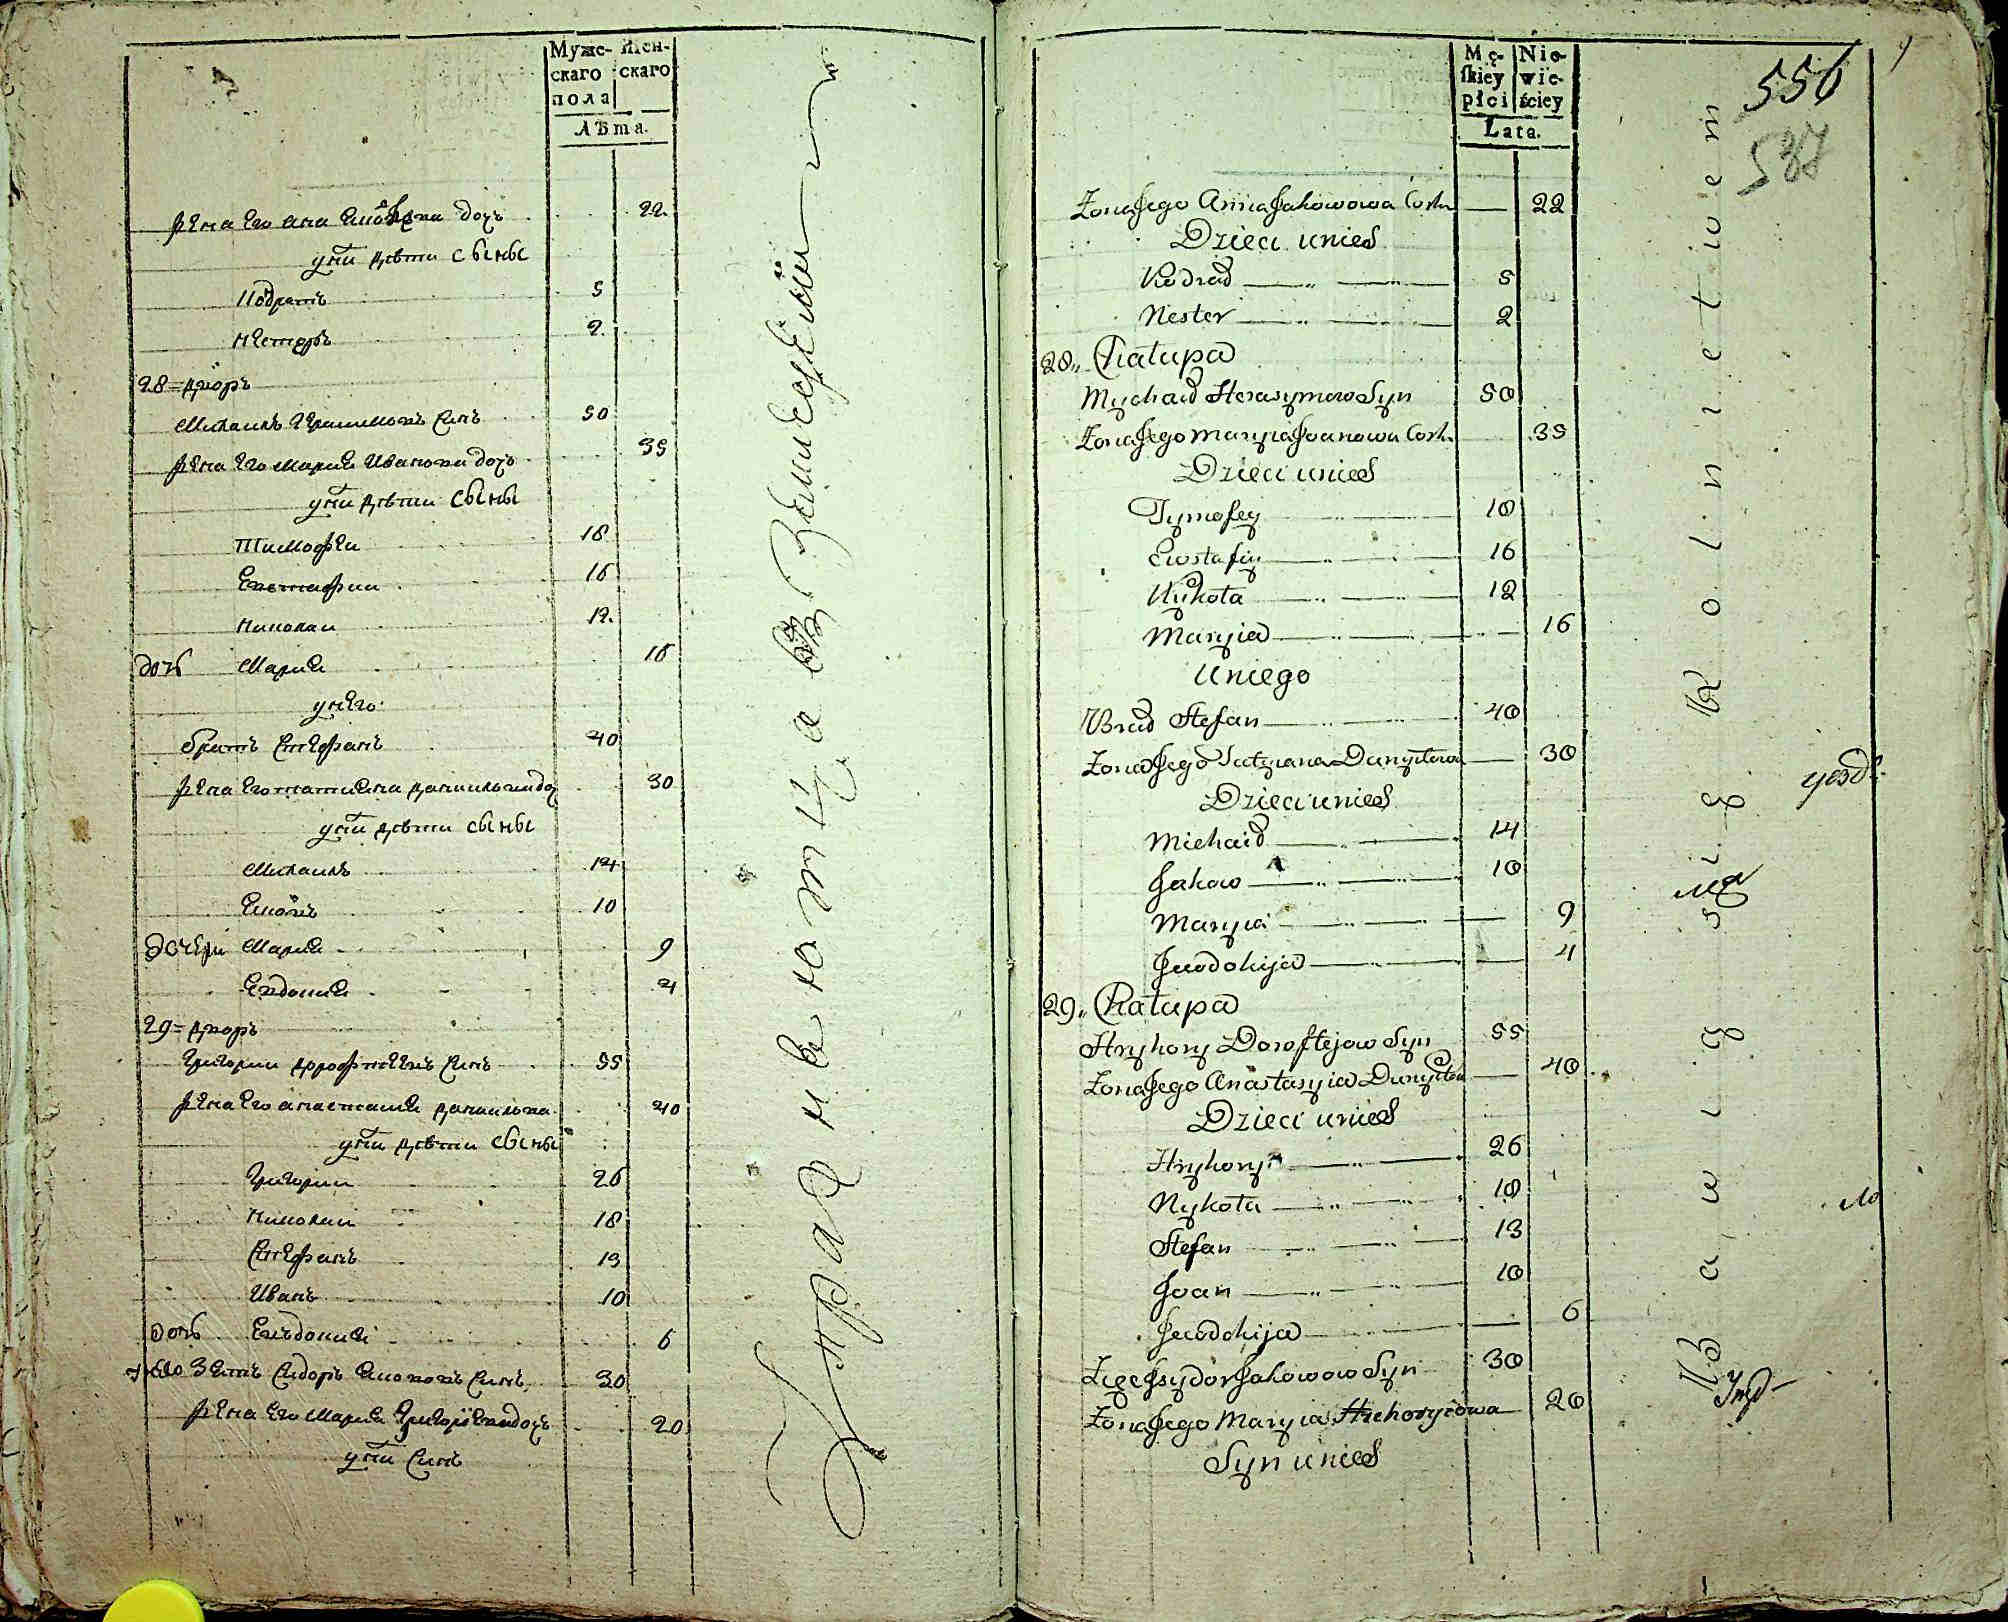 Муже- Жен-
скаго скаго
пола
Лѣта.
жена его ана ековлева дочь 22
у них дѣти сыны
Кодратъ 5
Нестеръ 2
28 = дворъ
Михаилъ Герасимовъ синъ 50
жена его Мария Иванова дочь 35
у них дѣти сыны
Тимофеи 18
Евстафии 16
Николаи 12
дочь Мария 16
у него
братъ Стефанъ 40
жена его татиена данилова до 30
у них дѣти сыны
Михаилъ 14
Ековъ 10
дочери Мария 9
Евдокия 4
29 = дворъ
Григории дорофтеевъ синъ 55
жена его анастасия данилова 40
у них дѣти сыны
Григории 26
Николаи 18
Стефанъ 13
Иванъ 10
дочь Евъдокия 6
Зять Сидоръ Екововъ синъ 30
жена его Мария Григориева дочь 20
у них синъ
Упражняются въ Земледелии
Mę- Nie-
skiey wie-
płci ściey
Lata.
556
537
Żona Jego Anna Jakowowa Cork 22
Dzieci u nich
Kodrad 5
Nester 2
28„ Chałupa
Mychaił Herasymow Syn 50
Żona Jego Maryia Joanowa Cork. 35
Dzieci u nich
Tymofey 18
Ewstafiy 16
Nykoła 12
Maryia 16
U niego
Brad Stefan 40
Żona Jego Tatyana Danyłowa 30
Dzieci u nich
Michaił 14
Jakow 10
Maryia 9
Jewdokija 4
29„ Chałupa
Hryhory Doroftejow Syn 55
Żona Jego Anastasyia Danyłow 40
Dzieci u nich
Hryhory 26
Nykoła 18
Stefan 13
Joan 10
Jewdokija 6
Zięć Isydor Jakowow Syn 30
Żona Jego Maryia Hrehoryiowa 20
Syn u nich
Bawią się Rolnictwem
уезд